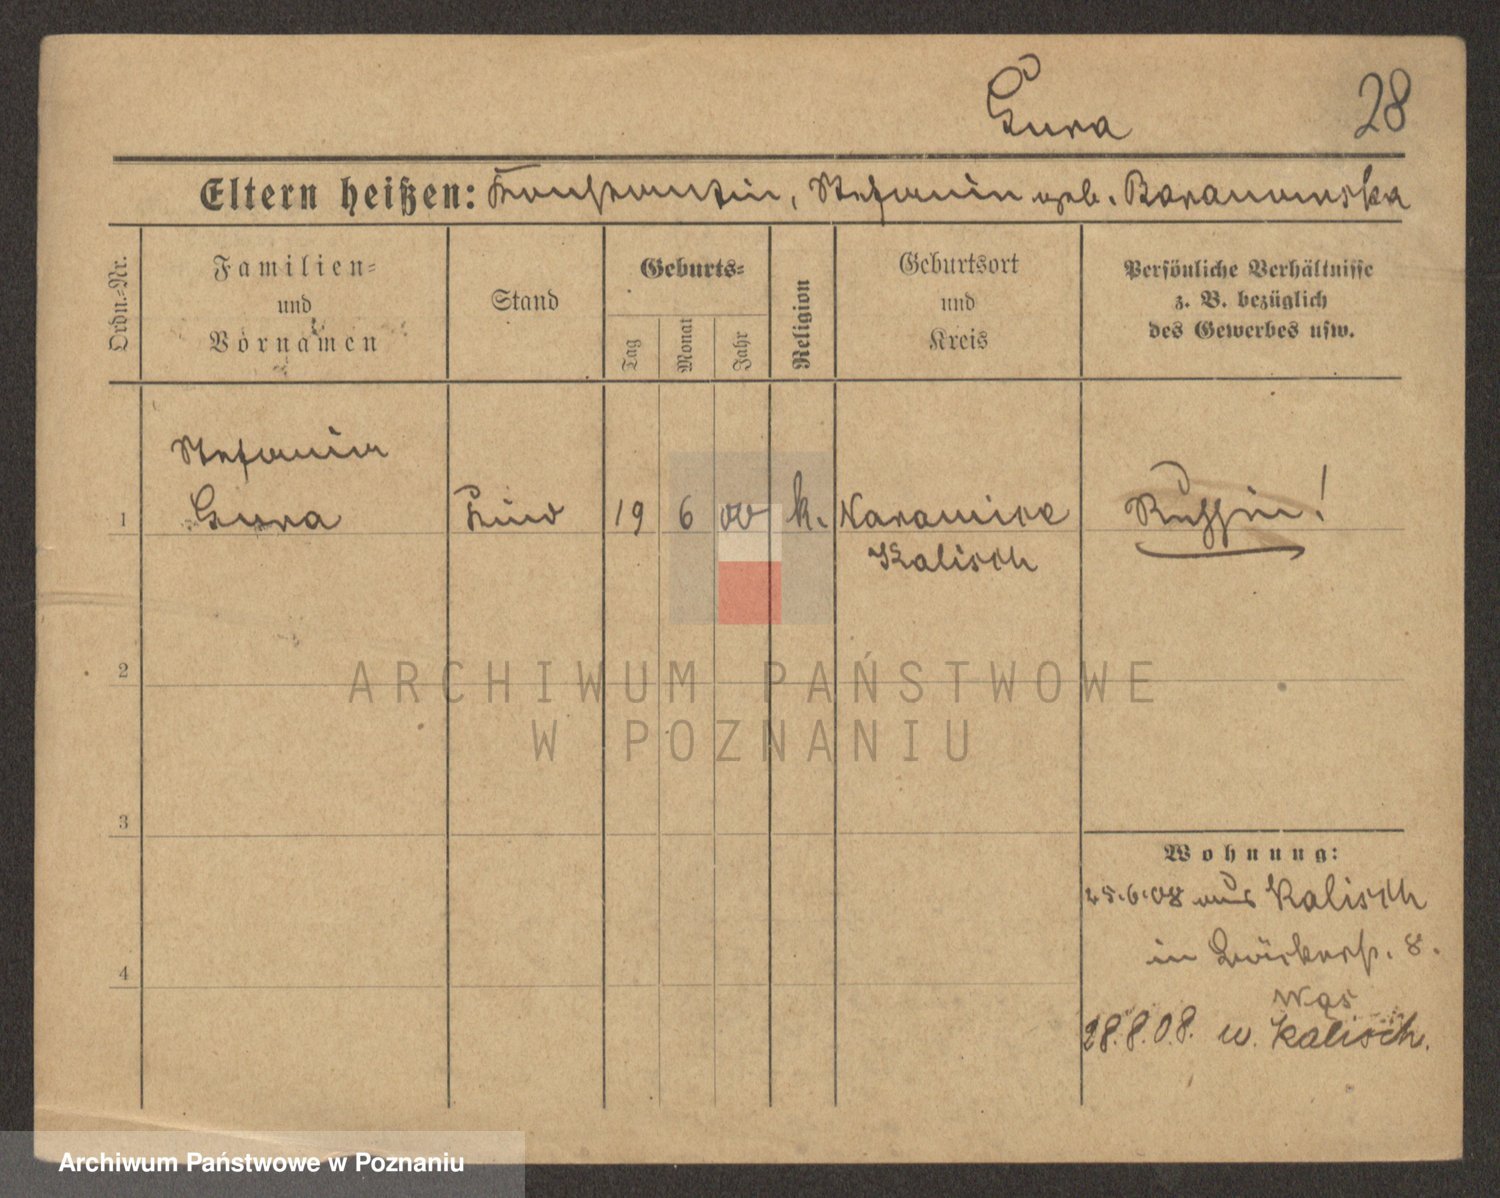 Gura
28
Eltern heißen: Konstantin, Stefania geb. Baranowska
Ordn.-Nr.
Familien-
und
Vornamen
Stand
Geburts-
Tag
Monat
Jahr
Religion
Geburtsort
und
Kreis
Persönliche Verhältnisse
z. B. bezüglich
des Gewerbes usw.
Stefania
1 Gura Kind 19 6 00 k. Russin!
Kalisch
2
ARCHIWUM PAŃSTWOWE
W POZNANIU
3
Wohnung:
25.6.08 aus Kalisch
in Bäckerstr. 8.
4
28.8.08. n. Kalisch.
Archiwum Państwowe w Poznaniu